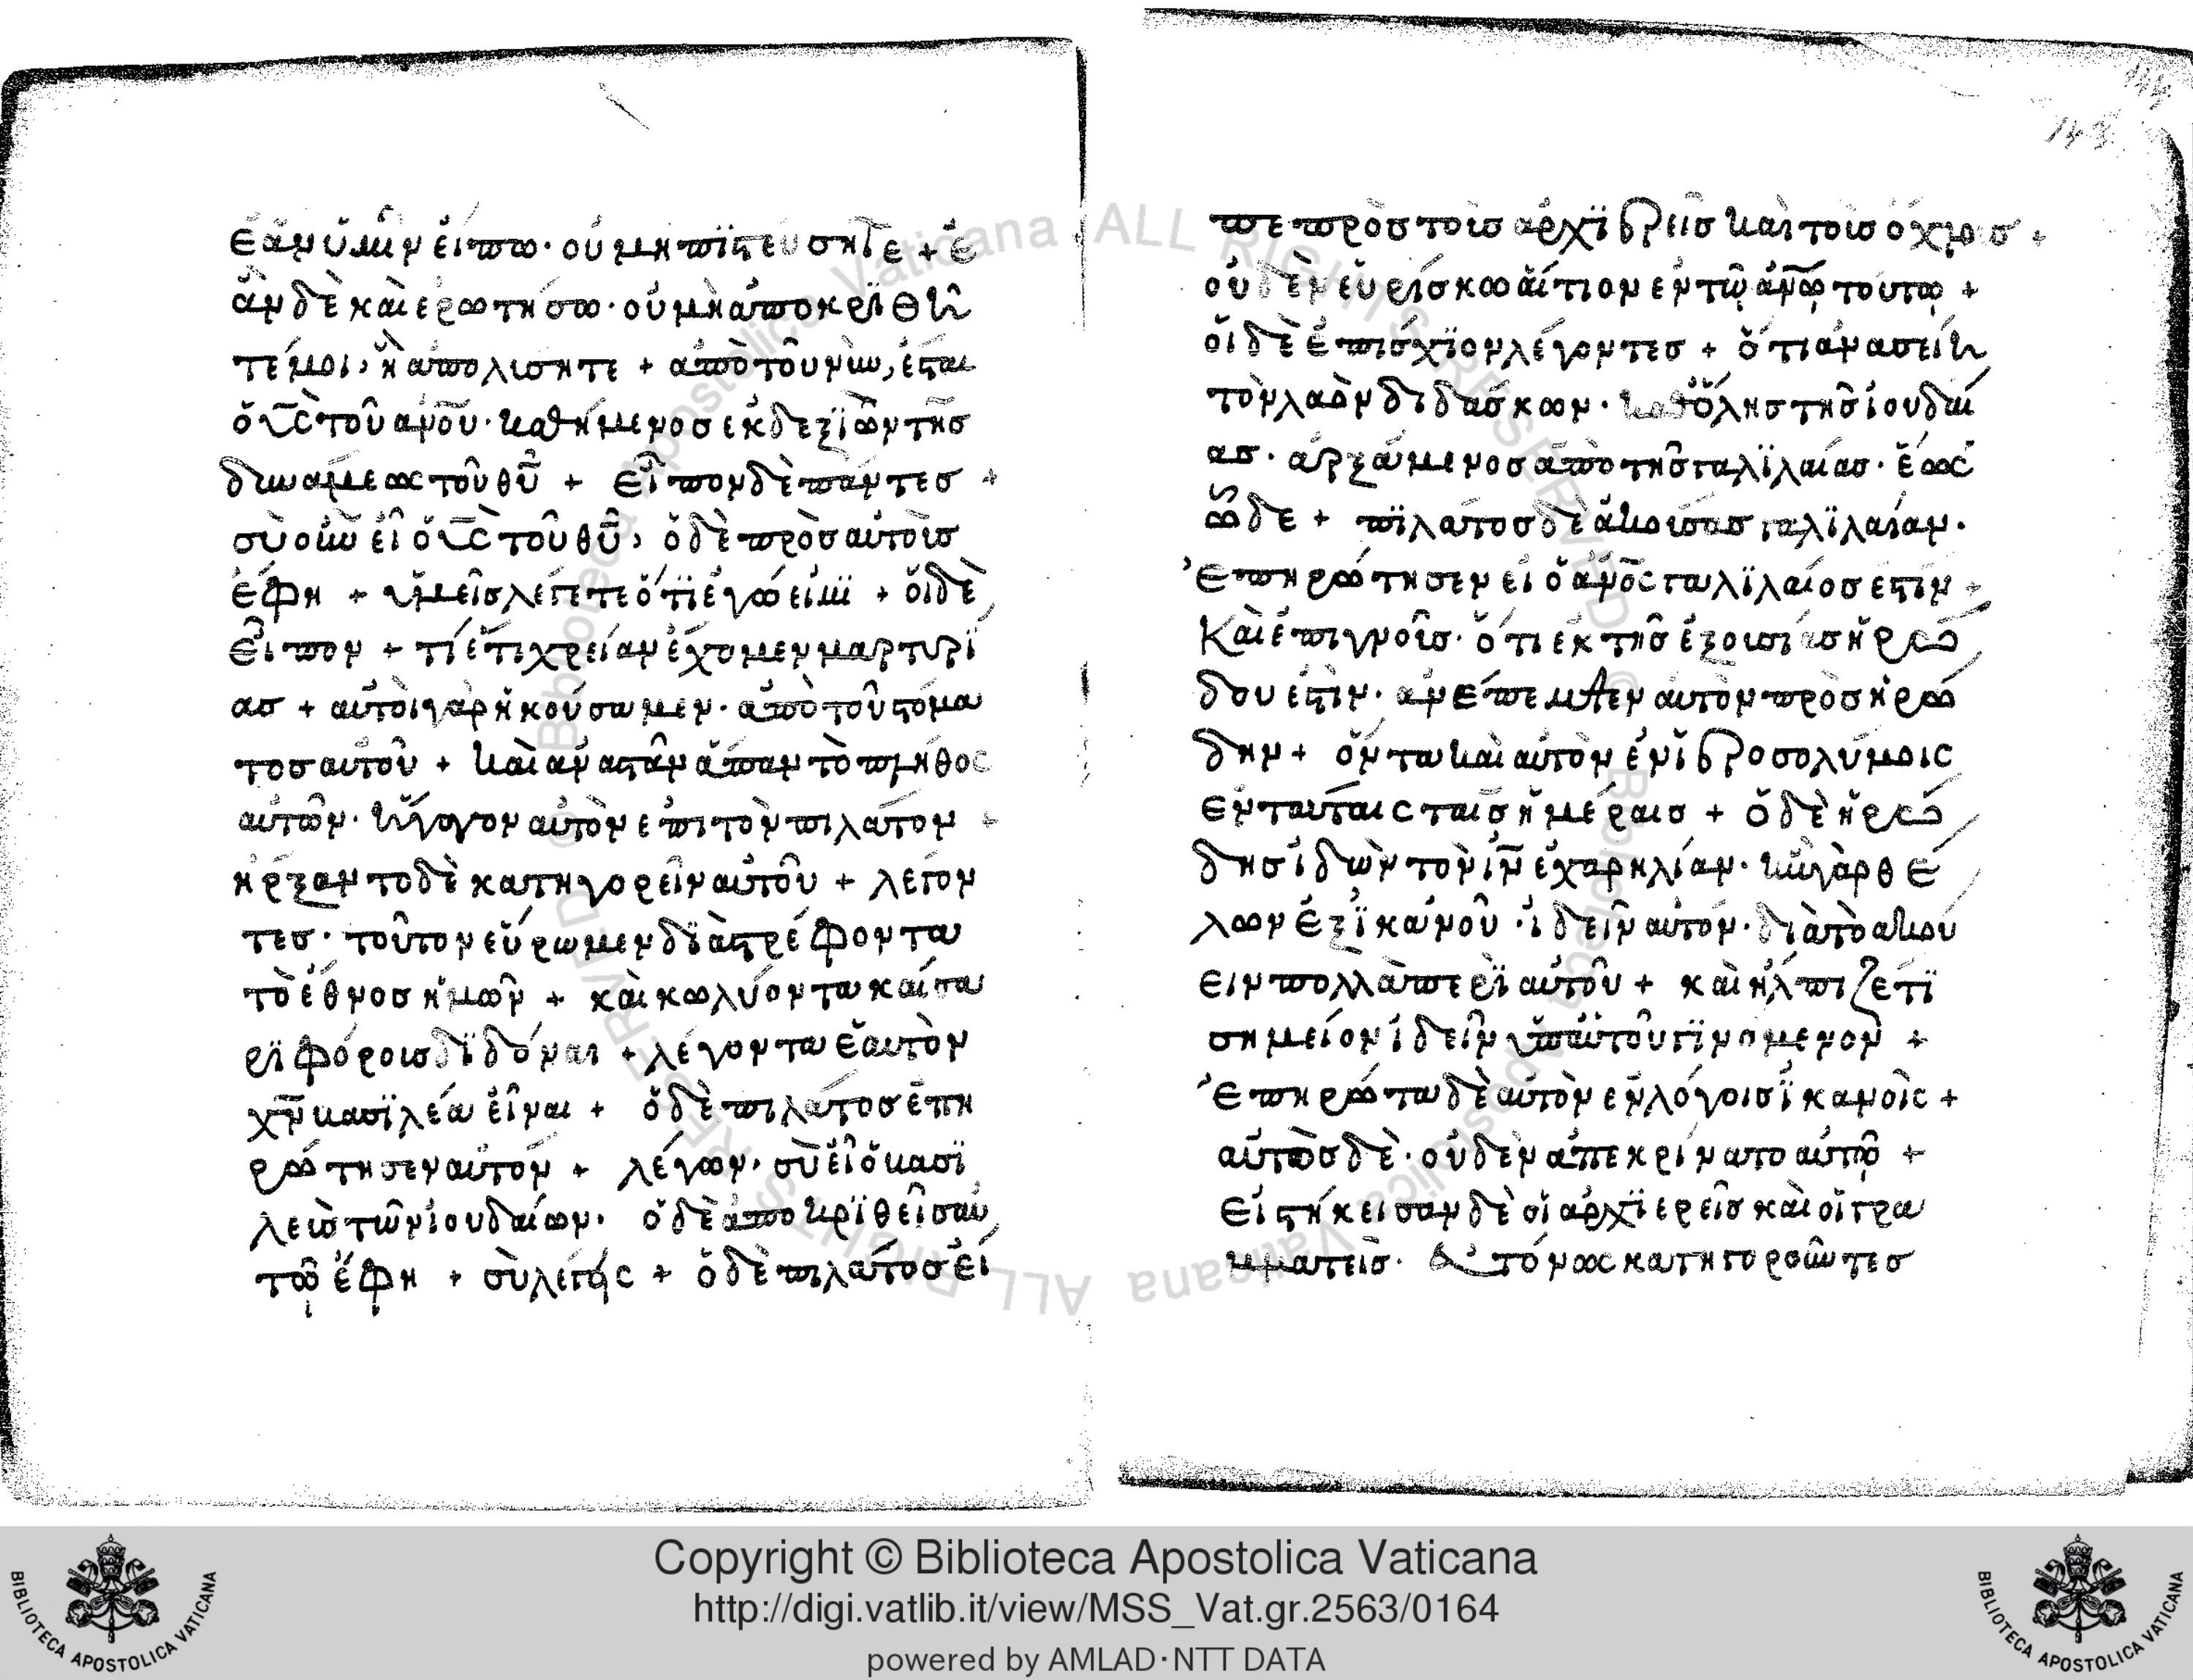 ἐὰν ὑμῖν εἴπω· οὐ μὴ πϊστευσητε + ἐ
ἂν δὲ καὶ ἐρωτήσω· οὐ μὴ ἀποκρϊθῆ
τέ μοι, ἢ ἀπολυσητε + ἀπὸ τοῦ νῦν, ἔσται
ὁ υ̅ς̅ τοῦ αν̅ου̅· καθήμενος ἐκ δεξϊῶν τῆς
δυνάμεως τοῦ θυ̅ + Εἶπον δὲ πάντες +
σὺ οὖν εἶ ὁ υ̅ς̅ τοῦ θυ̅, ὁ δὲ πρὸς αὐτοὺς
ἔφη + ὑμεῖς λέγετε ὅτϊ ἐγώ εἰμϊ + ὁι δὲ
εἶπον + τί ἔτι χρείαν ἔχομεν μαρτυρϊ
ας + αὐτοὶ γὰρ ἠκούσαμεν· ἀπὸ τοῦ στόμα
τος αὐτοῦ + καὶ ἀναστὰν ἅπαν τὸ πλῆθος
αὐτῶν· ἤγαγον αὐτὸν ἐπι τὸν πιλάτον +
ἠρξαντο δὲ κατηγορεῖν αὐτοῦ + λεγον
τες· τοῦτον εὕρωμεν δϊαστρέφοντα
τὸ ἔθνος ἡμῶν + καὶ κωλύοντα καίσα
ρϊ φόρους δϊδόναι + λέγοντα ἑαυτὸν
χν̅ βασϊλέα εἶναι + ὁ δὲ πιλάτος ἐπη
ρώτησεν αὐτὸν + λέγων· σὺ εἶ ὁ βασϊ
λεὺς τῶν ἰουδαίων· ὁ δὲ ἀποκρϊθεὶς αὐ
τῷ ἔφη + σὺ λεγης + ὁ δὲ πιλάτος εἶ
πε πρὸς τοὺς ἀρχϊερεῖς καὶ τοὺς ὄχλους +
οὐδὲν εὑρίσκω αἴτιον ἐν τῷ αν̅ω̅ τούτω +
ὁι δὲ ἐπισχϊον λέγοντες + ὅτι ἀνασείη
τὸν λαὸν διδάσκων· καθ ὅλης τῆς ἰουδαί
ας· ἀρξάμενος ἀπὸ τῆς γαλϊλαίας· ἕως
ὧδε + πϊλάτος δὲ ἀκούσας γαλϊλαίαν·
Ἐπηρώτησεν εἰ ὁ αν̅ος̅ γαλϊλαίος ἐστιν +
Καὶ ἐπιγνοῦς· ὅτι ἐκ τῆς ἐξουσίας ἡρώ
δου ἐστὶν· ἀνέπεμψεν αὐτὸν πρὸς ἡρώ
δην + ὄντα καὶ αὐτὸν ἐν ἱεροσολύμοις
ἐν ταύταις ταῖς ἡμέραις + ὁ δὲ ἡρώ
δης ἰδὼν τὸν ιν̅ ἐχαρη λίαν· ἦν γὰρ θέ
λων ἐξ ϊκανοῦ· ἰδεῖν αὐτόν· διὰ τὸ ἀκού
ειν πολλὰ περϊ αὐτοῦ + καὶ ἤλπιζέ τϊ
σημείον ἰδεῖν ὑπ αὐτοῦ γϊνομενον +
Ἐπηρώτα δὲ αὐτὸν ἐν λόγοις ϊκανοῖς +
αὐτὸς δὲ· οὐδὲν ἀπεκρίνατο αὐτῷ +
Εἱστήκεισαν δὲ οἱ ἀρχϊερεῖς καὶ οἱ γρα
μματεῖς· εὐτόνως κατηγοροῦντες
Copyright © Biblioteca Apostolica Vaticana
http://digi.vatlib.it/view/MSS_Vat.gr.2563/0164
powered by AMLAD·NTT DATA
BIBLIOTECA APOSTOLICA VATICANA
BIBLIOTECA APOSTOLICA VATICANA